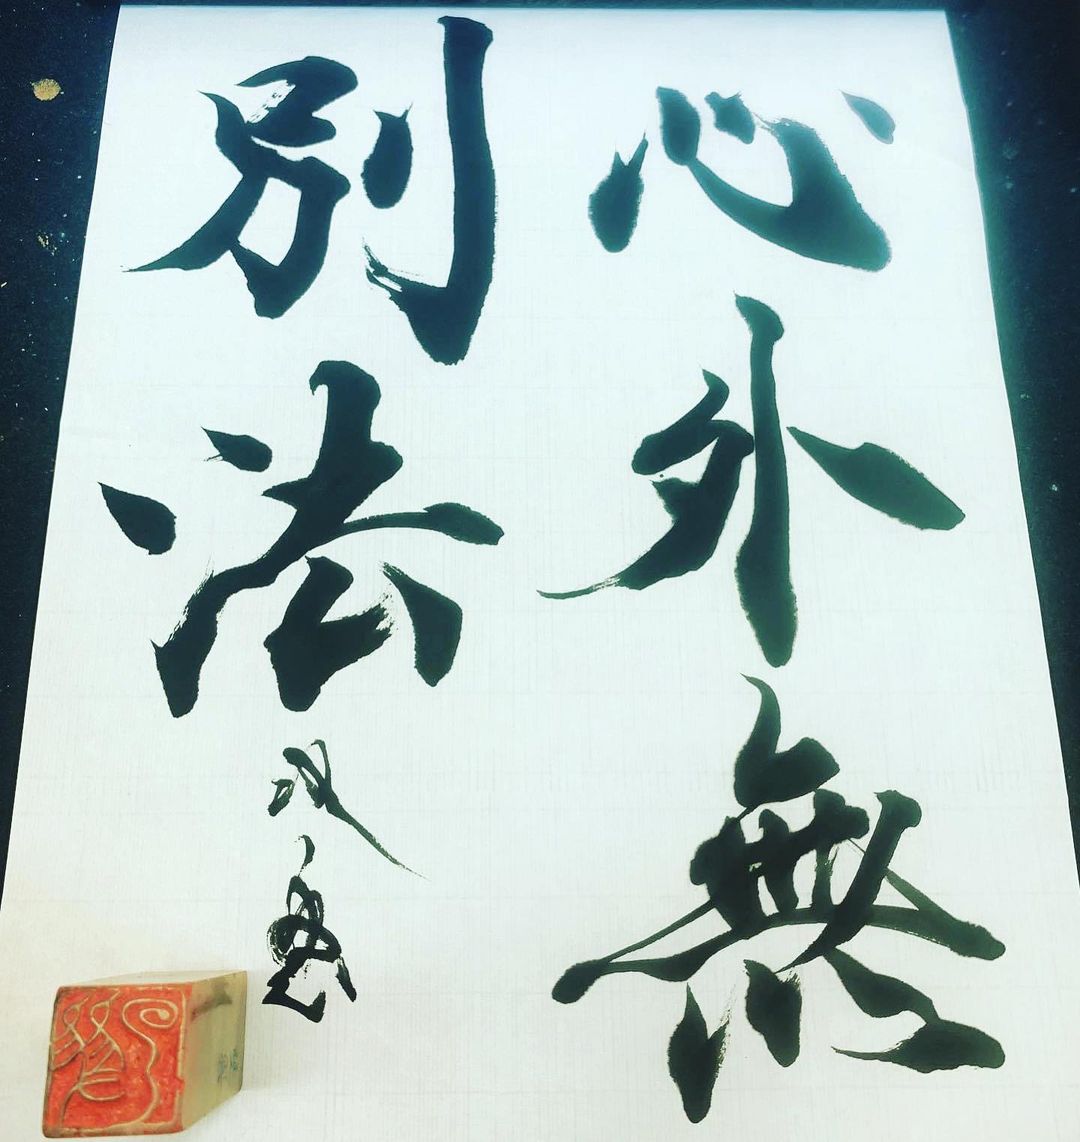 心外無
別法